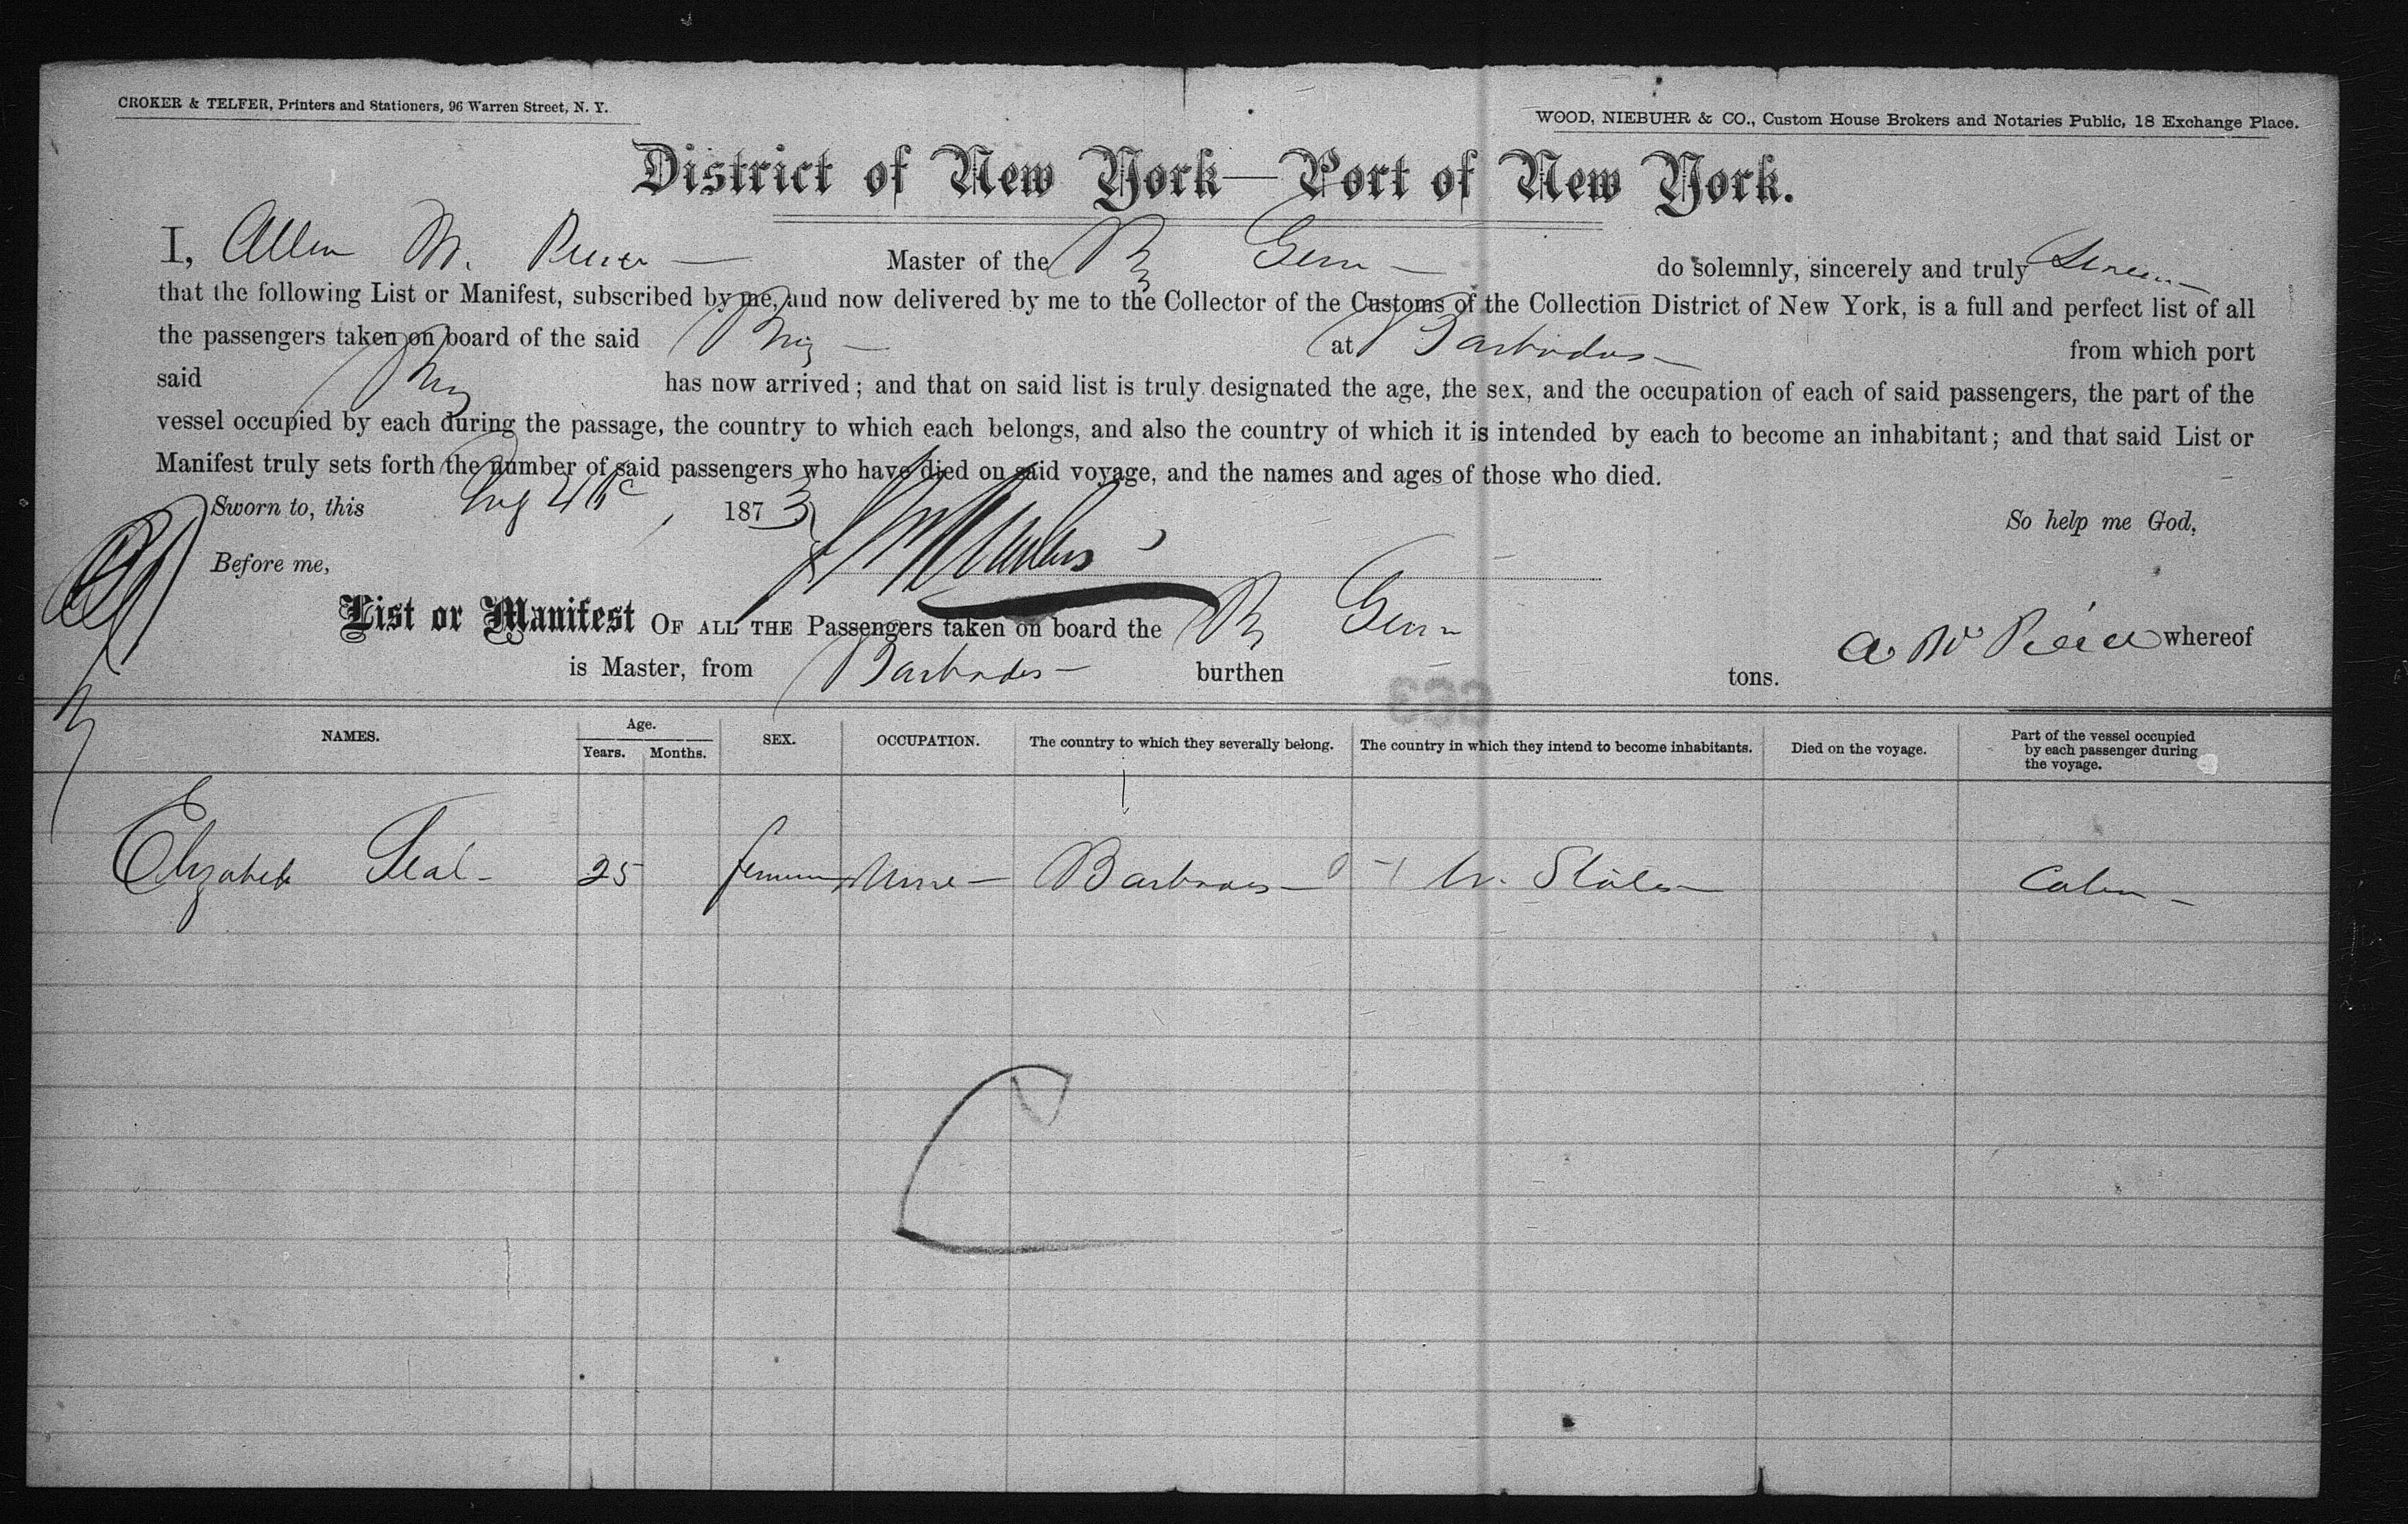 CROKER & TELFER, Printers and Stationers, 96 Warren Street, N. Y.
WOOD, NIEBUHR & CO., Custom House Brokers and Notaries Public, 18 Exchange Place.
District of New York—Port of New York.
I, Allen M. Master of the Bg Gem do solemnly, sincerely and truly Swear
that the following List or Manifest, subscribed by me, and now delivered by me to the Collector of the Customs of the Collection District of New York, is a full and perfect list of all
the passengers taken on board of the said Brig at Barbados from which port
said Brig has now arrived; and that on said list is truly designated the age, the sex, and the occupation of each of said passengers, the part of the
vessel occupied by each during the passage, the country to which each belongs, and also the country of which it is intended by each to become an inhabitant; and that said List or
Manifest truly sets forth the number of said passengers who have died on said voyage, and the names and ages of those who died.
Sworn to, this Aug 4th, 1873 So help me God,
Before me,
List or Manifest OF ALL THE Passengers taken on board the Bg Gem A M whereof
is Master, from Barbados burthen tons.
663
NAMES. Age. Years. Months. SEX. OCCUPATION. The country to which they severally belong. The country in which they intend to become inhabitants. Died on the voyage. Part of the vessel occupied by each passenger during the voyage.
Elizabeth 25 Nurse Barbados U. States Cabin